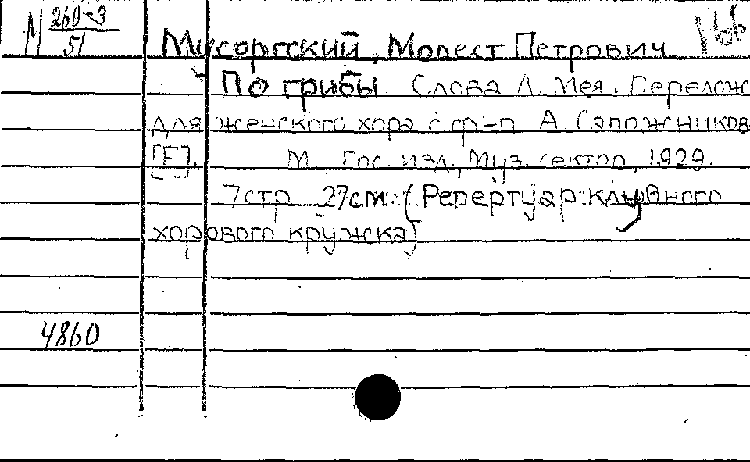 М 260-3
51
166
Мусоргский, Модест Петрович
По грибы. Слова Л. Мея. Перелож
для женского хора с ф-п. А. Сапожников
[F]. М. Гос. изд., Муз. сектор, 1929.
7стр. 27см. (Репертуар клубного
хорового кружка)
4860